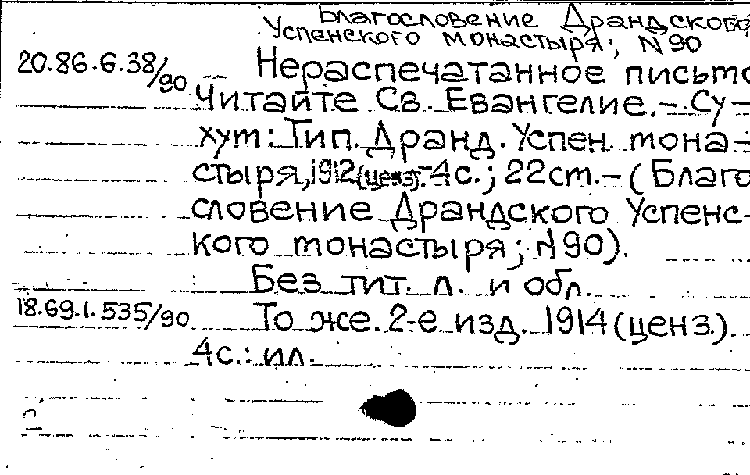 Благословение Драндского
Успенского монастыря; N90
20.86.6.38/90 Нераспечатанное письмо
Читайте Св. Евангелие. – Су-
хут: Тип. Дранд. Успен. мона-
стыря, 1912 (ценз). – 4с.; 22ст. – (Благо
словение Драндского Успенс-
кого монастыря; N90).
Без тит. л. и обл.
18.69.1.535/90 То же. 2-е изд. 1914 (ценз.)
4с.: ил.